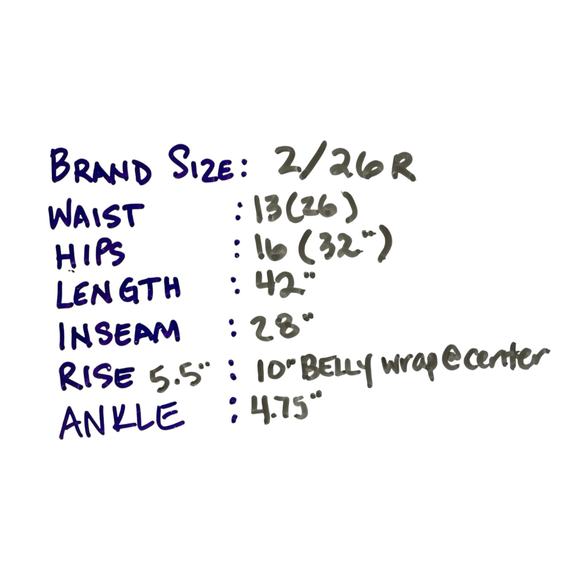 BRAND SIZE: 2/26R
WAIST : 13(26)
HIPS : 16 (32")
LENGTH : 42"
INSEAM : 28"
RISE 5.5" : 10" BELLY wrap@center
ANKLE : 4.75"